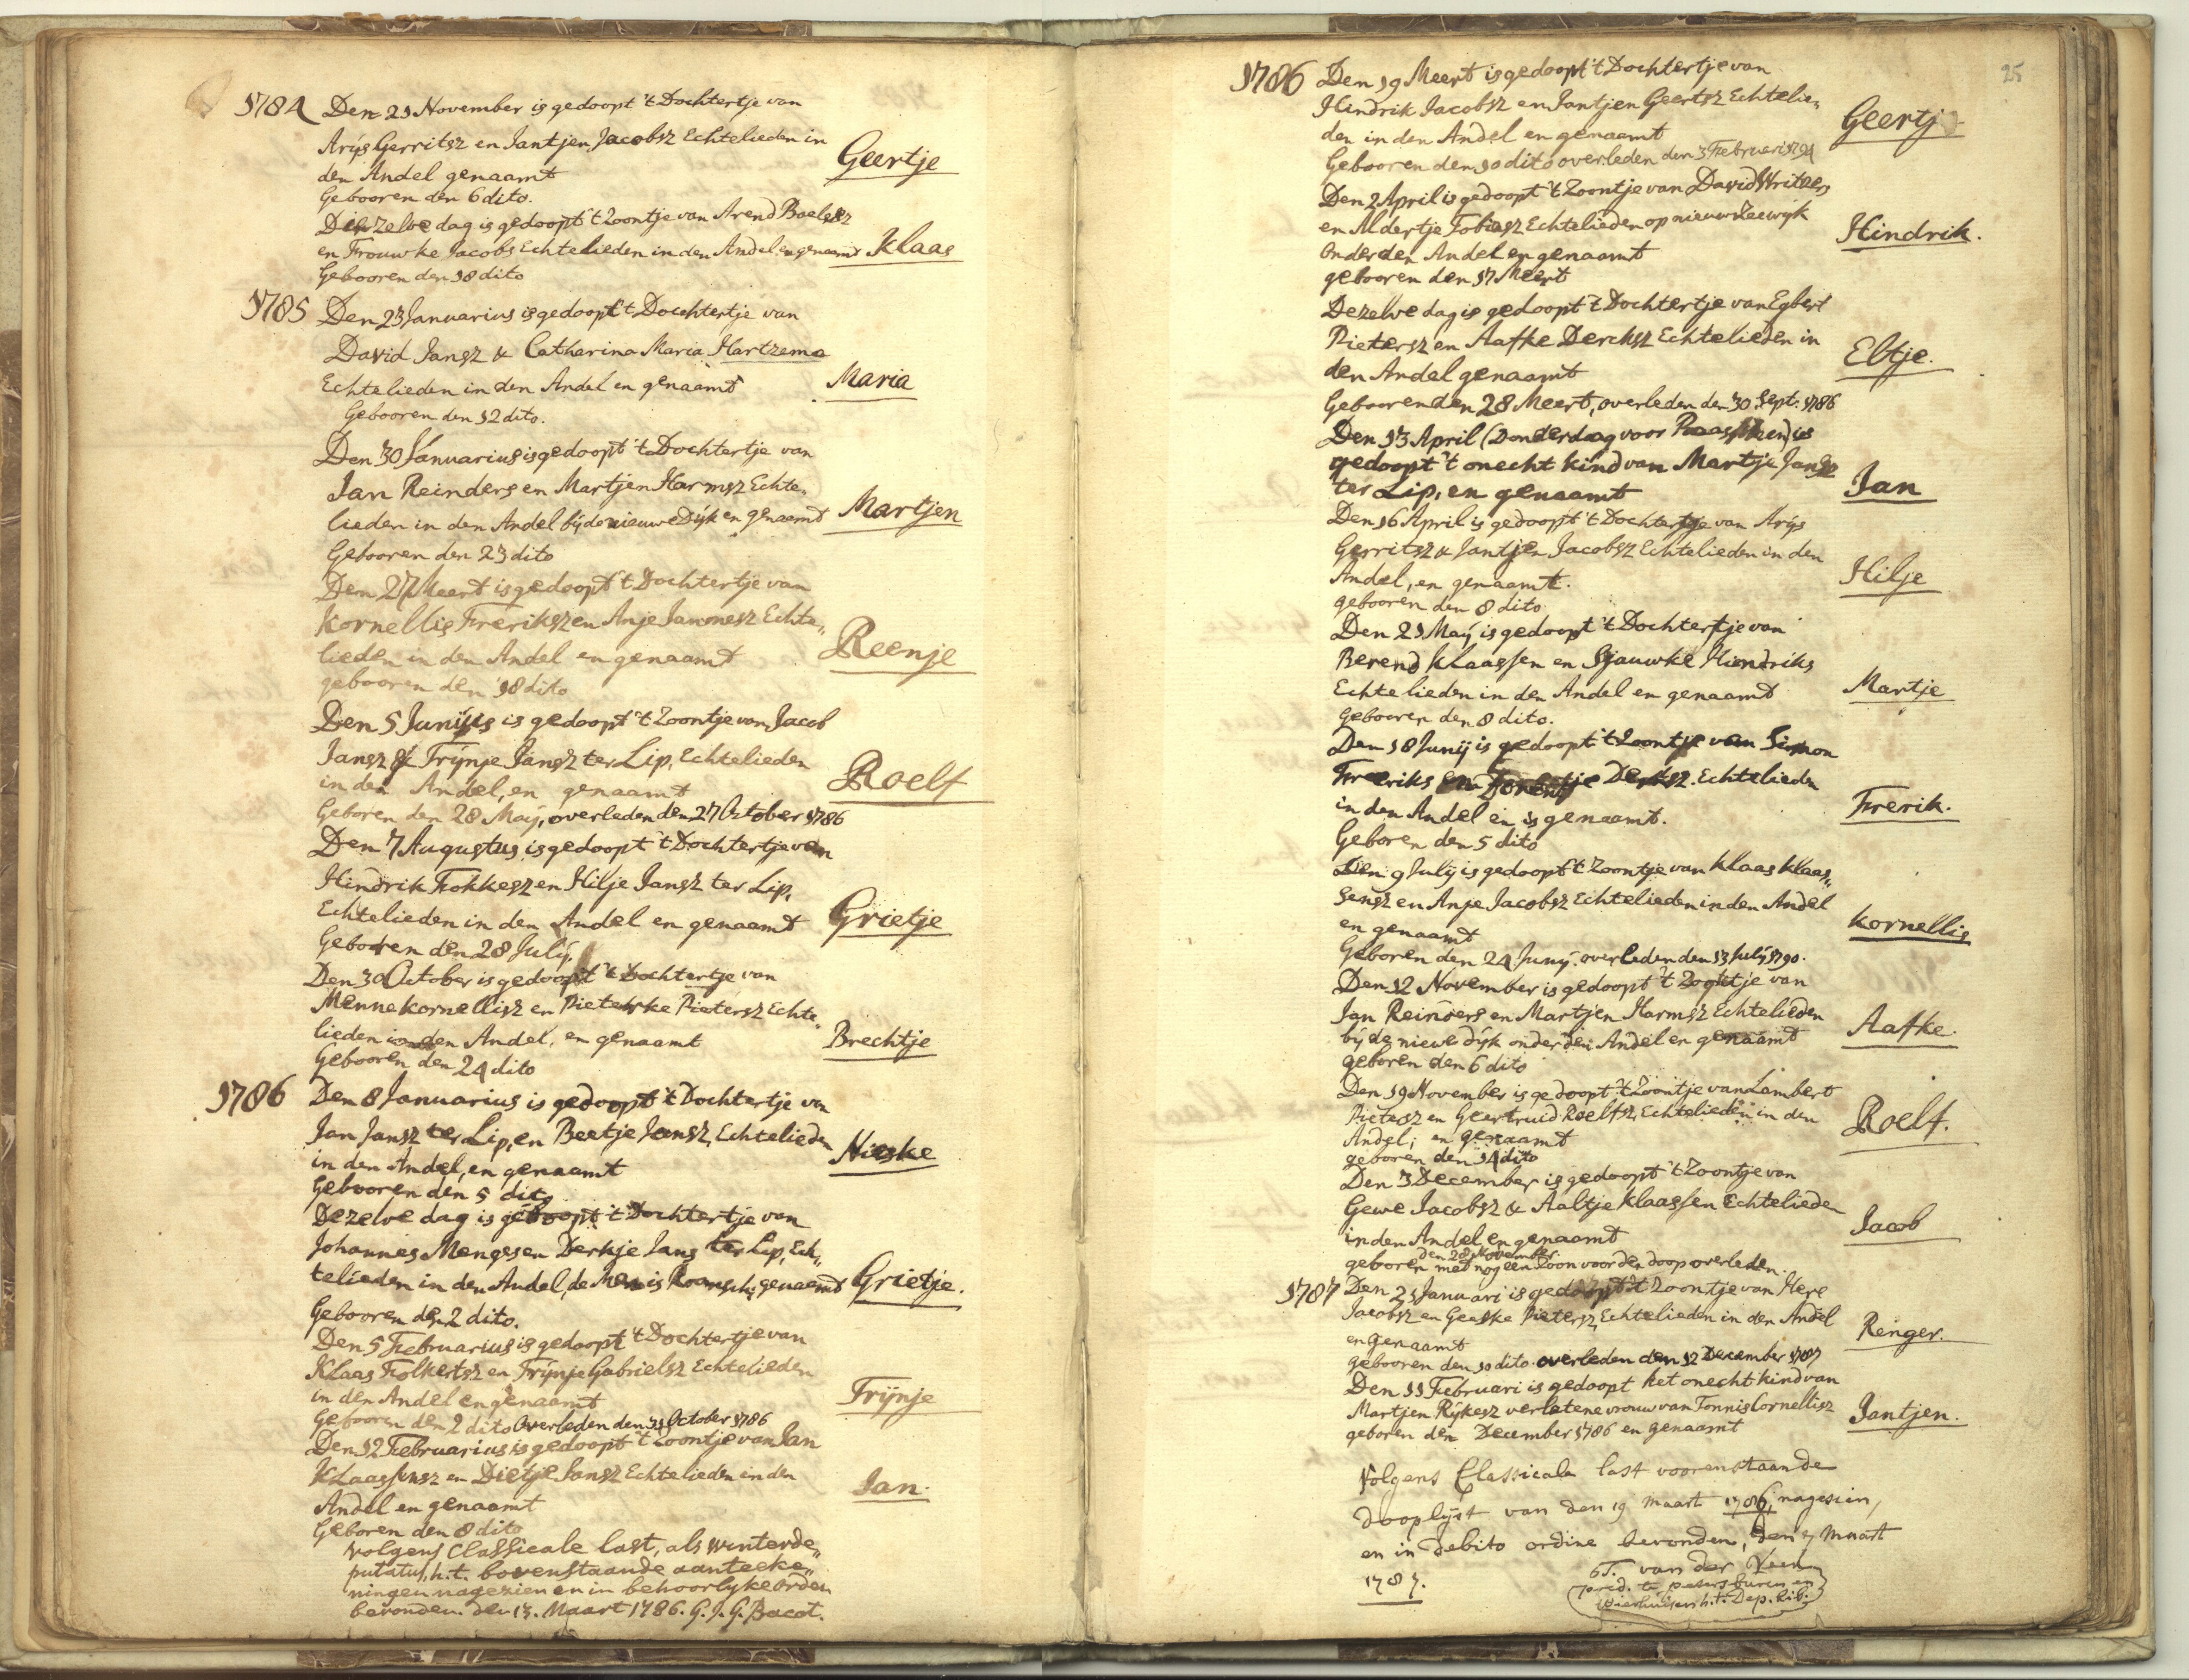 1784 Den 21 November is gedoopt 't Dochtertje van
Arijs Gerritsz en Jantjen Jacobsz Echtelieden in
den Andel genaamt Geertje
Gebooren den 6 dito.
Dezelve dag is gedoopt 't Zoontje van Arend Roelfsz
en Frouwke Jacobs Echtelieden in den Andel, en genaamt Klaas
Gebooren den 18 dito
1785 Den 23 Januarius is gedoopt 't Dochtertje van
David Jansz & Catharina Maria Hartzema
Echtelieden in den Andel en genaamt Maria
Gebooren den 12 dito.
Den 30 Januarius is gedoopt 't Dochtertje van
Jan Reinders en Martjen Harmsz Echte„
lieden in den Andel bij de nieuwe Dijk en genaamt Martjen
Gebooren den 23 dito
Den 27 Meert is gedoopt 't Dochtertje van
Kornellis Freriksz en Anje Jannesz Echte„
lieden in den Andel en genaamt Reenje
gebooren den 18 dito
Den 5 Junijus is gedoopt 't Zoontje van Jacob
Jansz & Trijnje Jansz ter Lip, Echtelieden
in den Andel, en genaamt Roelf
Geboren den 28 Maij, overleden den 27 October 1786
Den 7 Augustus is gedoopt 't Dochtertje van
Hindrik Fokkesz en Hilje Jansz ter Lip,
Echtelieden in den Andel en genaamt Grietje
Gebooren den 28 Julij.
Den 30 October is gedoopt 't Dochtertje van
Menne Kornellisz en Pieterke Pietersz Echte„
lieden in den Andel, en genaamt Brechtje
Gebooren den 24 dito
1786 Den 8 Januarius is gedoopt 't Dochtertje van
Jan Jansz ter Lip, en Beetje Jansz, Echtelieden
in den Andel, en genaamt Nieske
Gebooren den 5 dito
Dezelve dag is gedoopt 't Dochtertje van
Johannes Menges en Derkje Jans ter Lip, Ech„
telieden in den Andel, de Man is Roomsch; genaamt Grietje.
Gebooren den 2 dito.
Den 5 Februarius is gedoopt 't Dochtertje van
Klaas Folkertsz en Trijnje Gabrielsz Echtelieden
in den Andel en genaamt Trijnje
Gebooren den 2 dito Overleden den 31 October 1786
Den 12 Februarius is gedoopt 't Zoontje van Jan
Klaassensz en Dietje Jansz Echtelieden in den
Andel en genaamt Jan.
Geboren den 8 dito
Volgens Classicale last, als winterde„
putatus, h.t. bovenstaande aanteeke„
ningen nagezien en in behoorlyke orden
bevonden. den 13. Maart 1786. G. J. G. Bacot.
25
1786 Den 19 Meert is gedoopt 't Dochtertje van
Hindrik Jacobsz en Jantjen Geertsz Echtelie„
den in den Andel en genaamt Geertje
Gebooren den 10 dito overleden den 3 Februari 1791
Den 2 April is gedoopt 't Zoontje van David Writzers
en Aldertje Tobiasz Echtelieden op nieuw Zeewijk
onder den Andel en genaamt Hindrik.
gebooren den 17 Meert
Dezelve dag is gedoopt 't Dochtertje van Egbert
Pietersz en Aafke Dercksz Echtelieden in
den Andel genaamt Eltje.
Gebooren den 28 Meert, overleden den 30 Sept. 1786
Den 13 April (Donderdag voor Paasschen) is
gedoopt 't onecht kind van Martje Jansz
ter Lip, en genaamt Jan
Den 16 April is gedoopt 't Dochtertje van Arijs
Gerritsz & Jantjen Jacobsz Echtelieden in den
Andel, en genaamt. Hilje
gebooren den 8 dito
Den 21 Maij is gedoopt 't Dochtertje van
Berend Klaassen en Sjauwke Hiendriks
Echtelieden in den Andel en genaamt Martje
Gebooren den 8 dito.
Den 18 Junij is gedoopt 't Zoontje van Simon
Freeriks en Derksz. Echtelieden
in den Andel en is genaamt. Frerik.
Geboren den 5 dito
Den 9 Julij is gedoopt 't Zoontje van Klaas Klaas„
sensz en Anje Jacobsz Echtelieden in den Andel
en genaamt Kornellis
Geboren den 24 Junij. overleden den 13 Julij 1790.
Den 12 November is gedoopt 't Zoontje van
Jan Reinders en Martjen Harmsz Echtelieden
bij de niewe dijk onder den Andel en genaamt Aafke.
geboren den 6 dito
Den 19 November is gedoopt 't Zoontje van Lambert
Pietersz en Geertruid Roelfsz, Echtelieden in den
Andel; en genaamt Roelf.
geboren den 14 dito
Den 3 December is gedoopt 't Zoontje van
Gewe Jacobsz & Aaltje Klaassen Echtelieden
in den Andel en genaamt Jacob
den 28 November
geboren met nog een Zoon voor den doop overleden.
1787 Den 21 Januari is gedoopt 't Zoontje van Here
Jacobsz en Geeske Pietersz, Echtelieden in den Andel
en genaamt Renger.
gebooren den 10 dito. overleden den 12 December 1787
Den 11 Februari is gedoopt het onecht kind van
Martjen Rijkesz verlatene vrouw van Tonnis Cornellisz
geboren den December 1786 en genaamt Jantjen.
Volgens Classicale last voorenstaande
dooplijst van den 19 maart 1786, nagesien,
en in debito ordine bevonden, den 7 maart
1787. T. van der Veen
pred. te petersburen en
Wierhuisen h.t. Dep. hib.